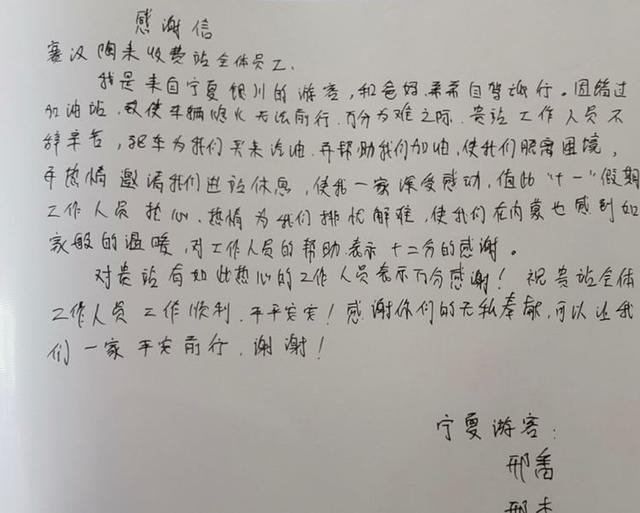 感谢信
赛汉陶来收费站全体员工.
我是来自宁夏银川的游客,和爸妈、弟弟自驾旅行。因错过
加油站,致使车辆熄火无法前行.万分为难之际.贵站工作人员不
辞辛苦,驱车为我们买来汽油.并帮助我们加油,使我们脱离困境,
并热情邀请我们进站休息,使我一家深受感动,值此"十一"假期
工作人员热心.热情为我们排忧解难,使我们在内蒙也感到如
家般的温暖,对工作人员的帮助表示十二分的感谢。
对贵站有如此热心的工作人员表示万分感谢!祝贵站全体
工作人员工作顺利.平平安安!感谢你们的无私奉献,可以让我
们一家平安前行.谢谢!
宁夏游客:
邢
邢